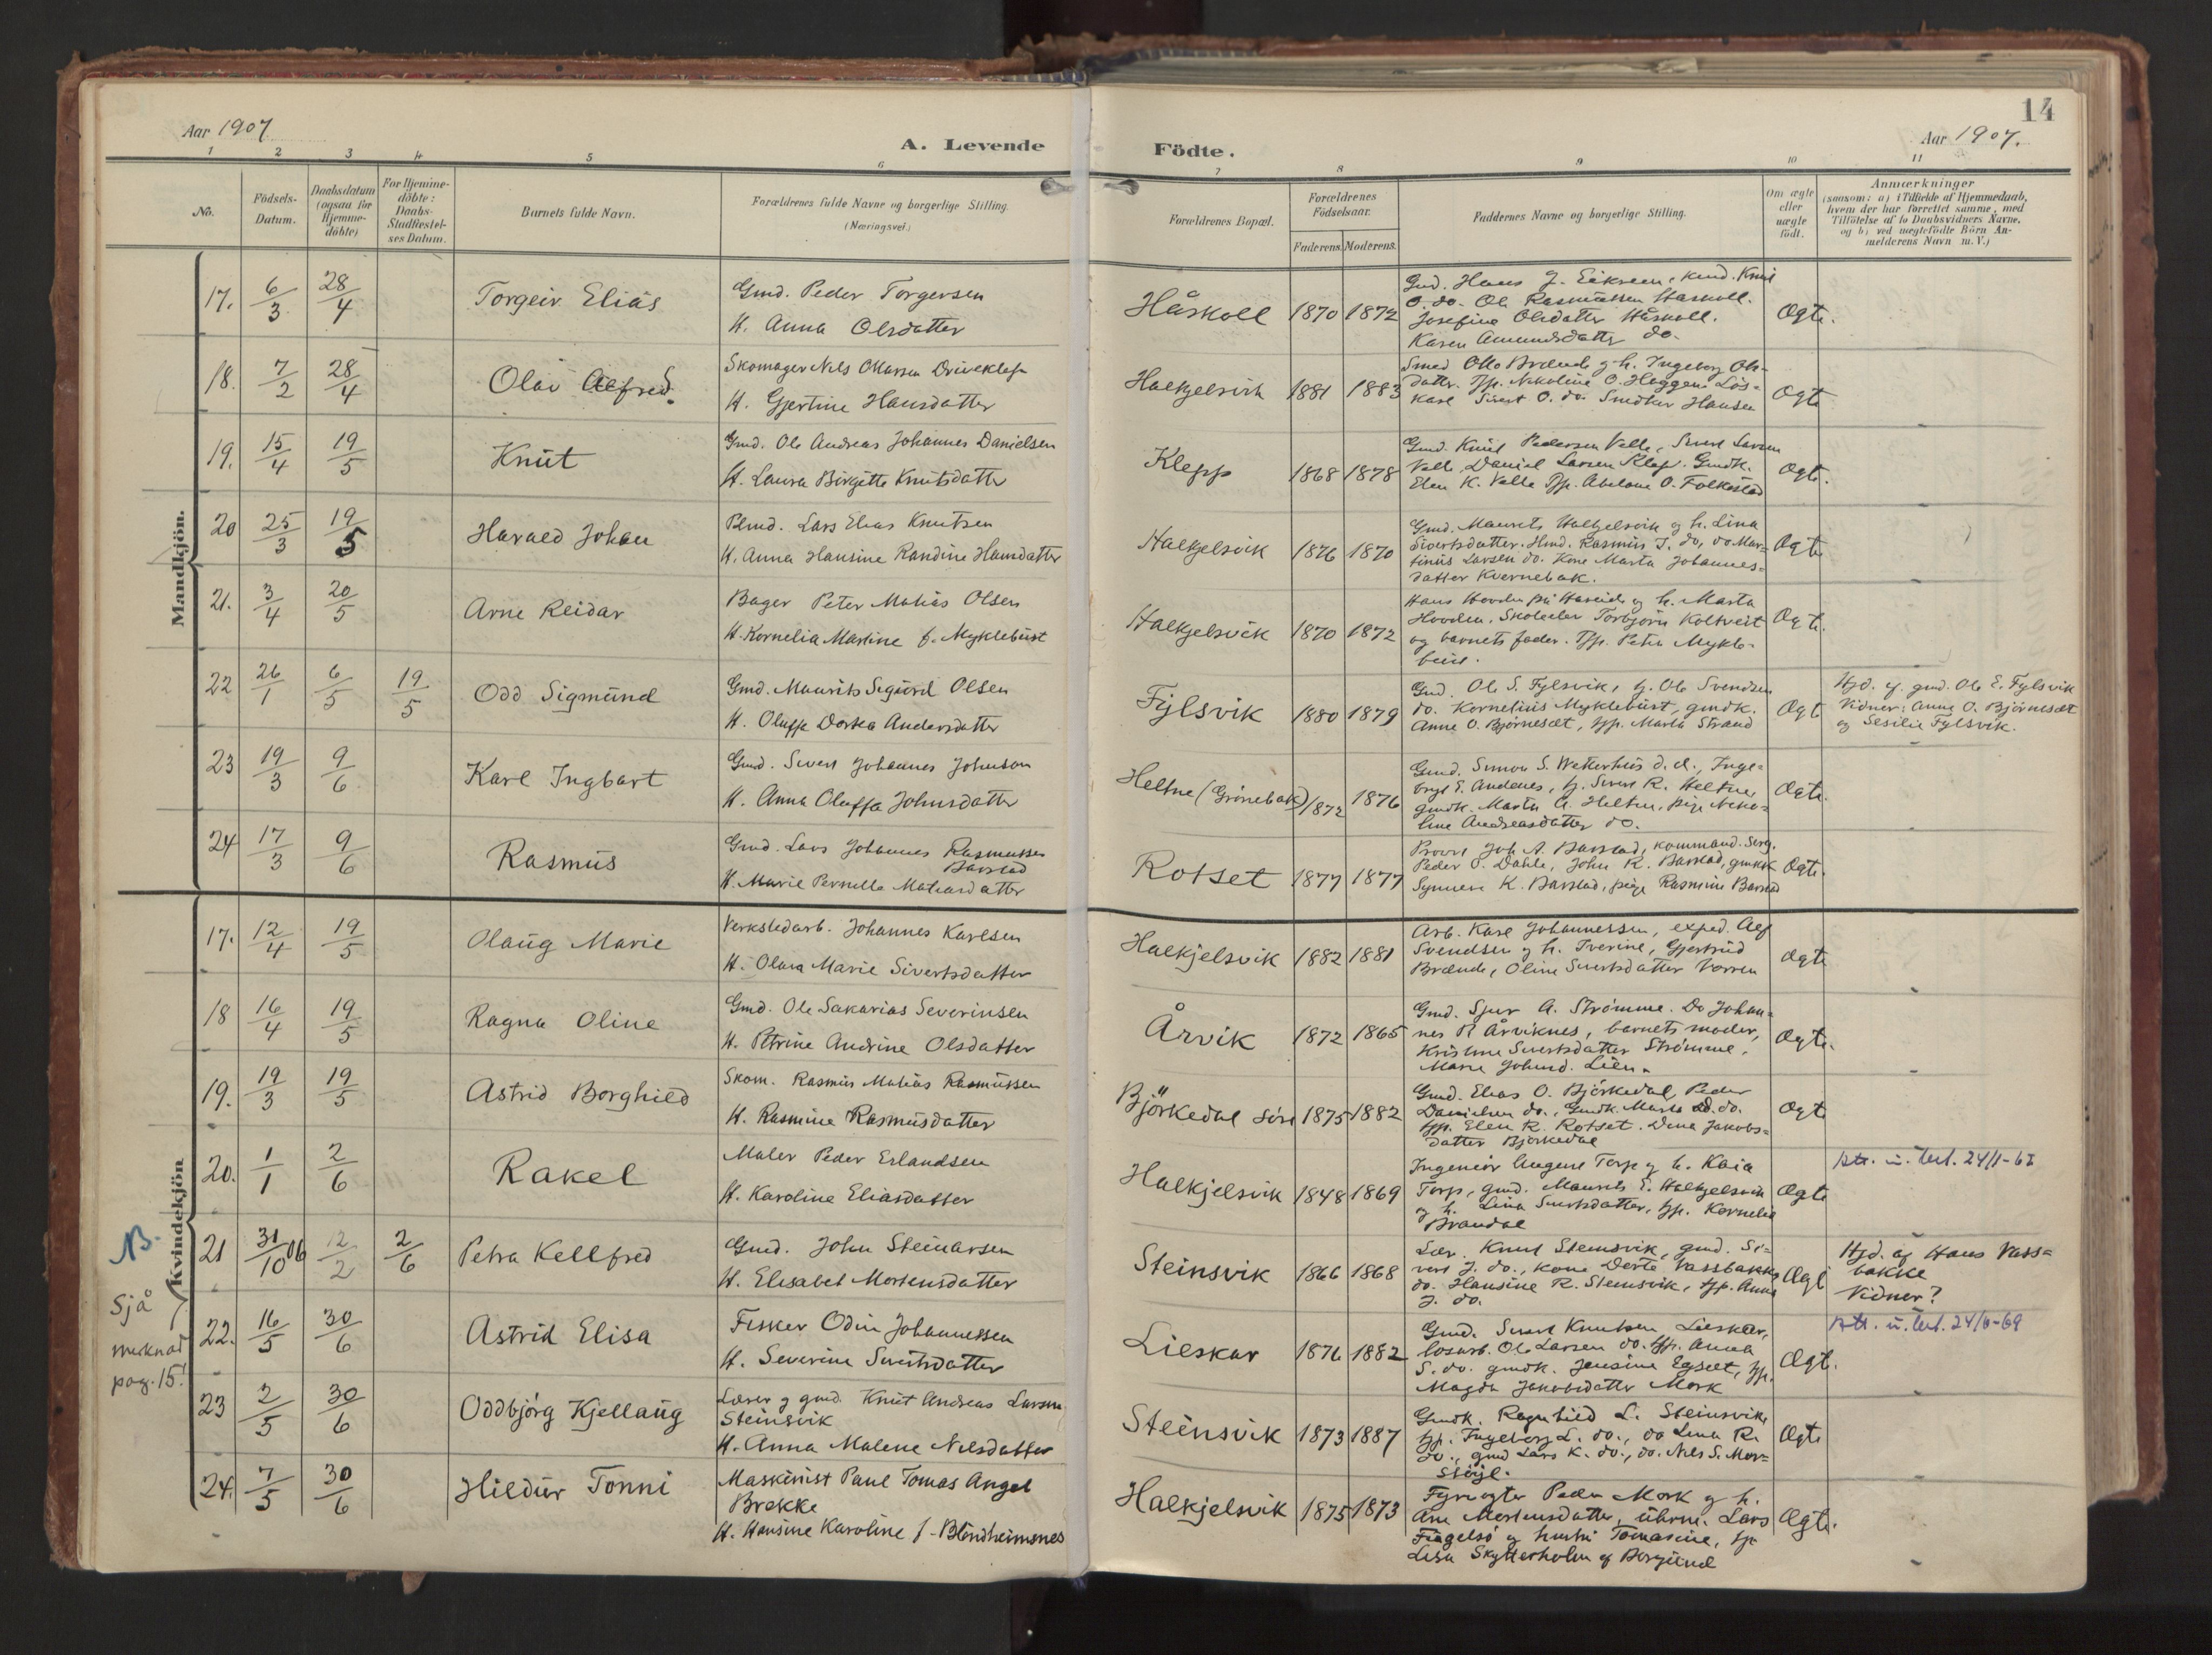 Aar 1907
A. Levende
Födte.
Aar 1907.
14
1 2 3 4 5 6 7 8 9 10 11
No.
Födsels-
Datum.
Daabsdatum
(ogsaa for
Hjemme-
döbte)
For Hjemme-
döbte:
Daabs-
Stadfæstel-
ses Datum.
Barnets fulde Navn.
Forældrenes fulde Navne og borgerlige Stilling.
(Næringsvei.)
Forældrenes Bopæl.
Forældrenes
Födselsaar.
Faderens. Moderens.
Faddernes Navne og borgerlige Stilling.
Om ægte
eller
uægte
födt.
Anmærkninger
(saasom: a) i Tilfælde af Hjemmedaab,
hvem der har forrettet samme, med
Tilföielse af to Daabsvidners Navne,
og b) ved uægtefödte Börn An-
melderens Navn m. V.)
Mandkjön.
17. 6/3 28/4 Torgeir Elias
Gmd. Peder Torgersen
H. Anna Olsdatter
Håskoll 1870 1872
Gmd. Hans J. Eikrem, kmd. Knut
O. do. Ole Rasmussen Haskoll.
Josefine Olsdatter Håskoll.
Karen Amundsdatter do.
Ogte.
18. 7/2 28/4 Olav Alfred.
Skomager Nels Olsen Driveklep
H. Gjertine Hansdatter
Halkjelsvik 1881 1883
Smed Otto Brænde og h. Ingeborg Ols-
datter. Pp. Nikoline O. Heggen. Løs-
karl Sivert O. do. Snedker Hansen
Ogte
19. 15/4 19/5 Knut
Gmd. Ole Andreas Johannes Danielsen
H. Laura Birgitte Knutsdatter
Klepp 1868 1878
Gmd. Knut Pedersen Velle, Sivert Larsen
Velle, Daniel Larsen Klep. Gmdk.
Elen K. Velle Pp. Abelone O. Folkestad
Ogte.
20 25/3 19/5 Harald Johan
Plmd. Lars Elias Knutsen
H. Anna Hansine Randine Hansdatter
Halkjelsvik 1876 1870
Gmd. Maurits Halkjelsvik og h. Lina
Sivertsdatter. Hmd. Rasmus J. do, do Mar-
tinus Larsen do. Kone Marta Johannes-
datter Kvernebak.
Ogte
21. 3/4 20/5 Arne Reidar
Bager Peter Matias Olsen
H. Kornelia Martine f. Myklebust
Halkjelsvik 1870 1872
Hans Hovden på Hareide og h. Marta
Hovden. Skoleeler Torbjörn Koltveit
og barnets fader. Pp. Petra Mykle-
bust.
Ogt.
22 26/1 6/5 19/5 Odd Sigmund
Gmd. Maurits Sigurd Olsen
H. Oluffa Dortea Andersdatter
Fylsvik 1880 1879
Gmd. Ole S. Fylsvik, g. Ole Svendsen
do. Kornelius Myklebust, gmdk.
Anne O. Bjørneset, pp. Marta Strand
Ogt
Hjd. af gmd. Ole E. Fylsvik
Vidner: Anne O. Bjørneset
og Sesilie Fylsvik.
23 19/3 9/6 Karl Ingbart
Gmd. Sivert Johannes Johnsen
H. Anna Oluffa Johnsdatter
Heltne (Grönebak) 1872 1876
Gmd. Simon S. Wetterhus d. e., Inge-
bregt E. Andenes, g. Sivert R. Heltne,
gmdk. Marta A. Heltne, pige Niko-
line Andreasdatter do.
Ogte.
24 17/3 9/6 Rasmus
Gmd. Lars Johannes Rasmussen
Barstad
H. Marie Pernelle Matiasdatter
Rotset 1877 1877
Provst Joh A. Barstad, kommand. Serg.
Peder P. Dahle, John R. Barstad, gmdk
Synneve K. Barstad, pige Rasmine Barstad
Ogte.
Kvindekjön
17. 12/4 19/5 Olaug Marie
Verkstedarb. Johannes Karlsen
H. Olava Marie Sivertsdatter
Halkjelsvik 1882 1881
Arb. Karl Johannessen, exped. Alf
Svendsen og h. Iverine, Gjertrud
Brænde, Oline Sivertsdatter Vorren
ogte
18 16/4 19/5 Ragna Oline
Gmd. Ole Sakarias Severinsen
H. Petrine Andrine Olsdatter
Årvik 1872 1865
Gmd. Sjur A. Strömme. Do Johan-
nes R Årviknes, barnets moder,
Kristine Sivertsdatter Strömme,
Marie Johnsd. Lien.
Ogte.
19. 19/3 19/5 Astrid Borghild
Skom. Rasmus Matias Rasmussen
H. Rasmine Rasmusdatter
Björkedal söre 1875 1882
Gmd. Elias O. Björkedal, Peder
Danielsen do., Gmdk. Marte do.
pp. Elen R. Rotset. Dina Jakobs-
datter Bjørkedal
Ogte
20. 1/1 2/6 Rakel
Maler Peder Erlandsen
H. Karoline Eliasdatter
Halkjelsvik 1848 1869
Ingeniör August Torp og h. Kaia
Torp, gmd. Maurits E. Halkjelsvik
og h. Lina Sivertsdatter, pp. Kornelie
Brandal
Ogte
Att. u. lut. 24/1-67
21 31/10 06 12/2 2/6 Petra Kellfred
Gmd. John Steinarsen
H. Elisabet Mortensdatter
Steinsvik 1866 1868
Lær. Knut Steinsvik, gmd. Si-
vert J. do., kone Dorte Vassbakke
do. Hansine R. Steinsvik, pp. Anna
J. do.
Ogt
Hjd. af Hans Vass-
bakke
Vidner?
NB.
Sjå
merknad
pag. 15!
22. 16/5 30/6 Astrid Elisa
Fisker Odin Johannessen
H. Severine Sivertsdatter
Lieskar 1876 1882
Gmd. Sivert Knutsen Lieskar,
losarb. Ole Larsen do. pp. Anna
S. do. gmdk. Jensine Egset, pp.
Magda Jakobsdatter Mork
Ogt.
Att. u. lut. 24/6-69
23 2/5 30/6 Oddbjørg Kjellaug
Lærer og gmd. Knut Andreas Larsen
Steinsvik
H. Anna Malene Nilsdatter
Steinsvik 1873 1887
Gmdk. Ragnhild L. Steinsvik,
pp. Ingeborg L. do., do Lina R.
do., gmd Lars K. do., do. Nils S. Mor-
stöyl.
Ogte
24. 7/5 30/6 Hildur Tonni
Maskinist Paul Tomas Angel
Brekke
H. Hansine Karoline f. Blindheimsnes
Halkjelsvik 1875 1873
Fyrvogter Peder Mork og h.
Ane Mortensdatter, uhrm. Lars
Fugelsö og hustru Tomasine, pp
Lisa Skytterholm af Borgund
Ogte.